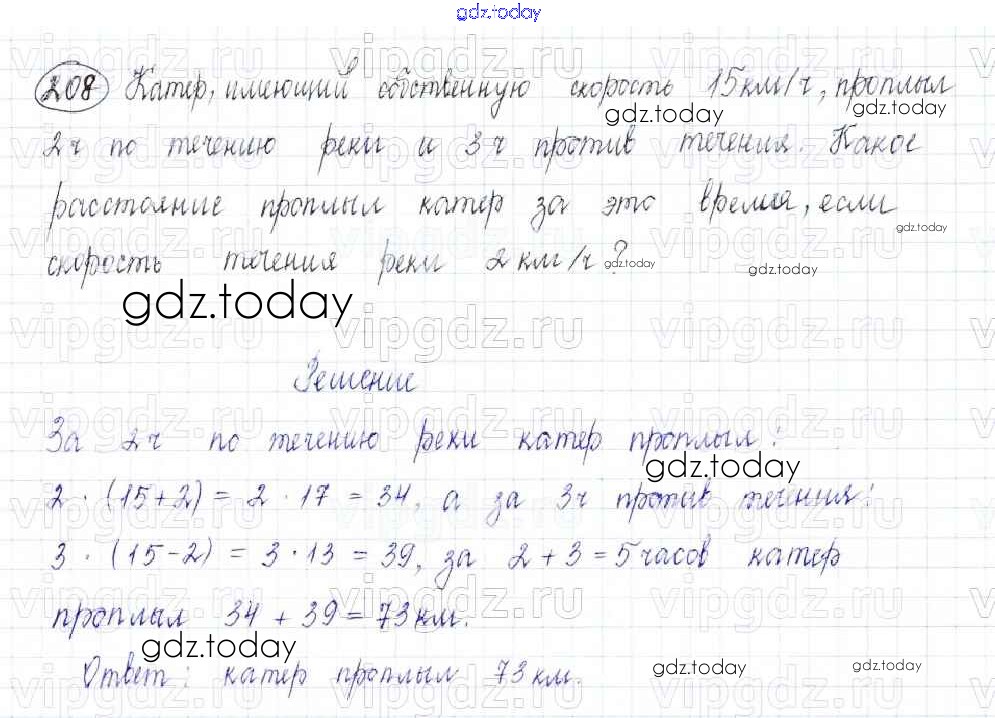 gdz.today
208 Катер, имеющий собственную скорость 15км/ч, проплыл
gdz.today gdz.today
2ч по течению реки и 3ч против течения. Какое
расстояние проплыл катер за это время, если
gdz.today
скорость течения реки 2 км/ч?
gdz.today gdz.today
gdz.today
vipgdz.ru vipgdz.ru vipgdz.ru
Решение
За 2ч по течению реки катер проплыл:
gdz.today
2 · (15+2) = 2 · 17 = 34, а за 3ч против течения:
3 · (15-2) = 3 · 13 = 39, за 2 + 3 = 5 часов катер
проплыл 34 + 39 = 73 км.
gdz.today
Ответ: катер проплыл 73 км.
gdz.today gdz.today